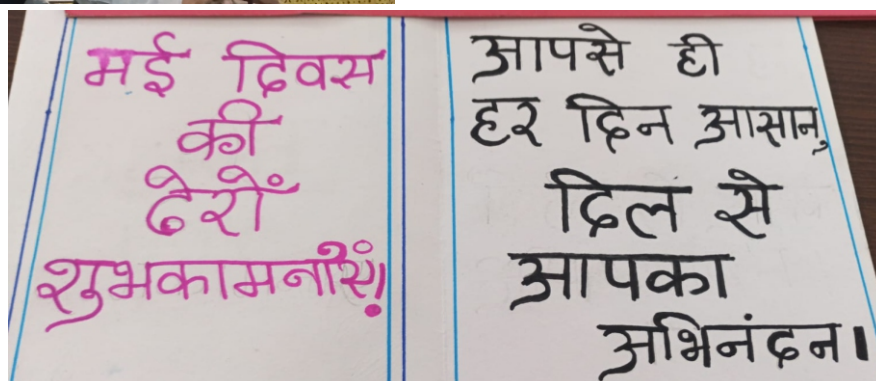 मई दिवस
की
ढेरों
शुभकामनाएं!
आपसे ही
हर दिन आसान,
दिल से
आपका
अभिनंदन।